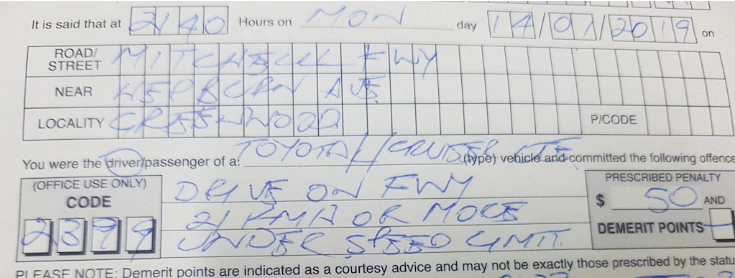 It is said that at 2140 Hours on MON day 14/01/2019 on
ROAD/STREET MITCHELL FWY
NEAR HEPBURN AVE
LOCALITY GREENWOOD P/CODE
You were the driver/passenger of a: TOYOTA L/CRUISER UTE (type) vehicle and committed the following offence
(OFFICE USE ONLY) PRESCRIBED PENALTY
CODE DRIVE ON FWY $ 50 AND
2399 21 KM/H OR MORE DEMERIT POINTS
UNDER SPEED LIMIT.
PLEASE NOTE: Demerit points are indicated as a courtesy advice and may not be exactly those prescribed by the statu